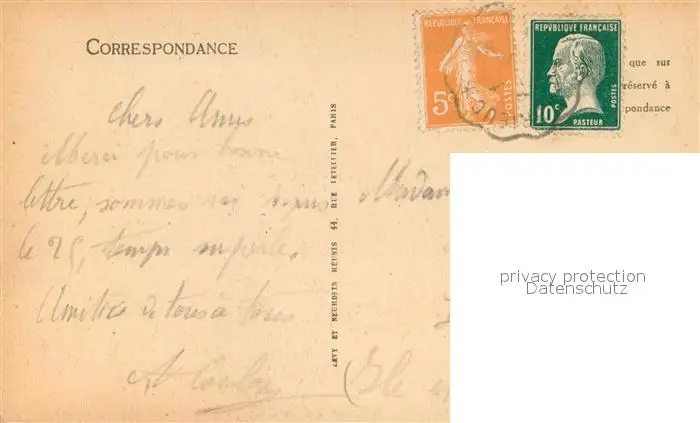 CORRESPONDANCE
REPUBLIQUE FRANÇAISE
5c POSTES
REPVBLIQVE FRANÇAISE
10c POSTES
PASTEUR
que sur
réservé à
pondance
Chers Amis
Merci pour bonne
lettre, sommes ici depuis
le 25, temps superbe,
Amitiés de tous à tous
Madam
LEVY ET NEURDEIN RÉUNIS 44, RUE LETELLIER, PARIS
privacy protection
Datenschutz